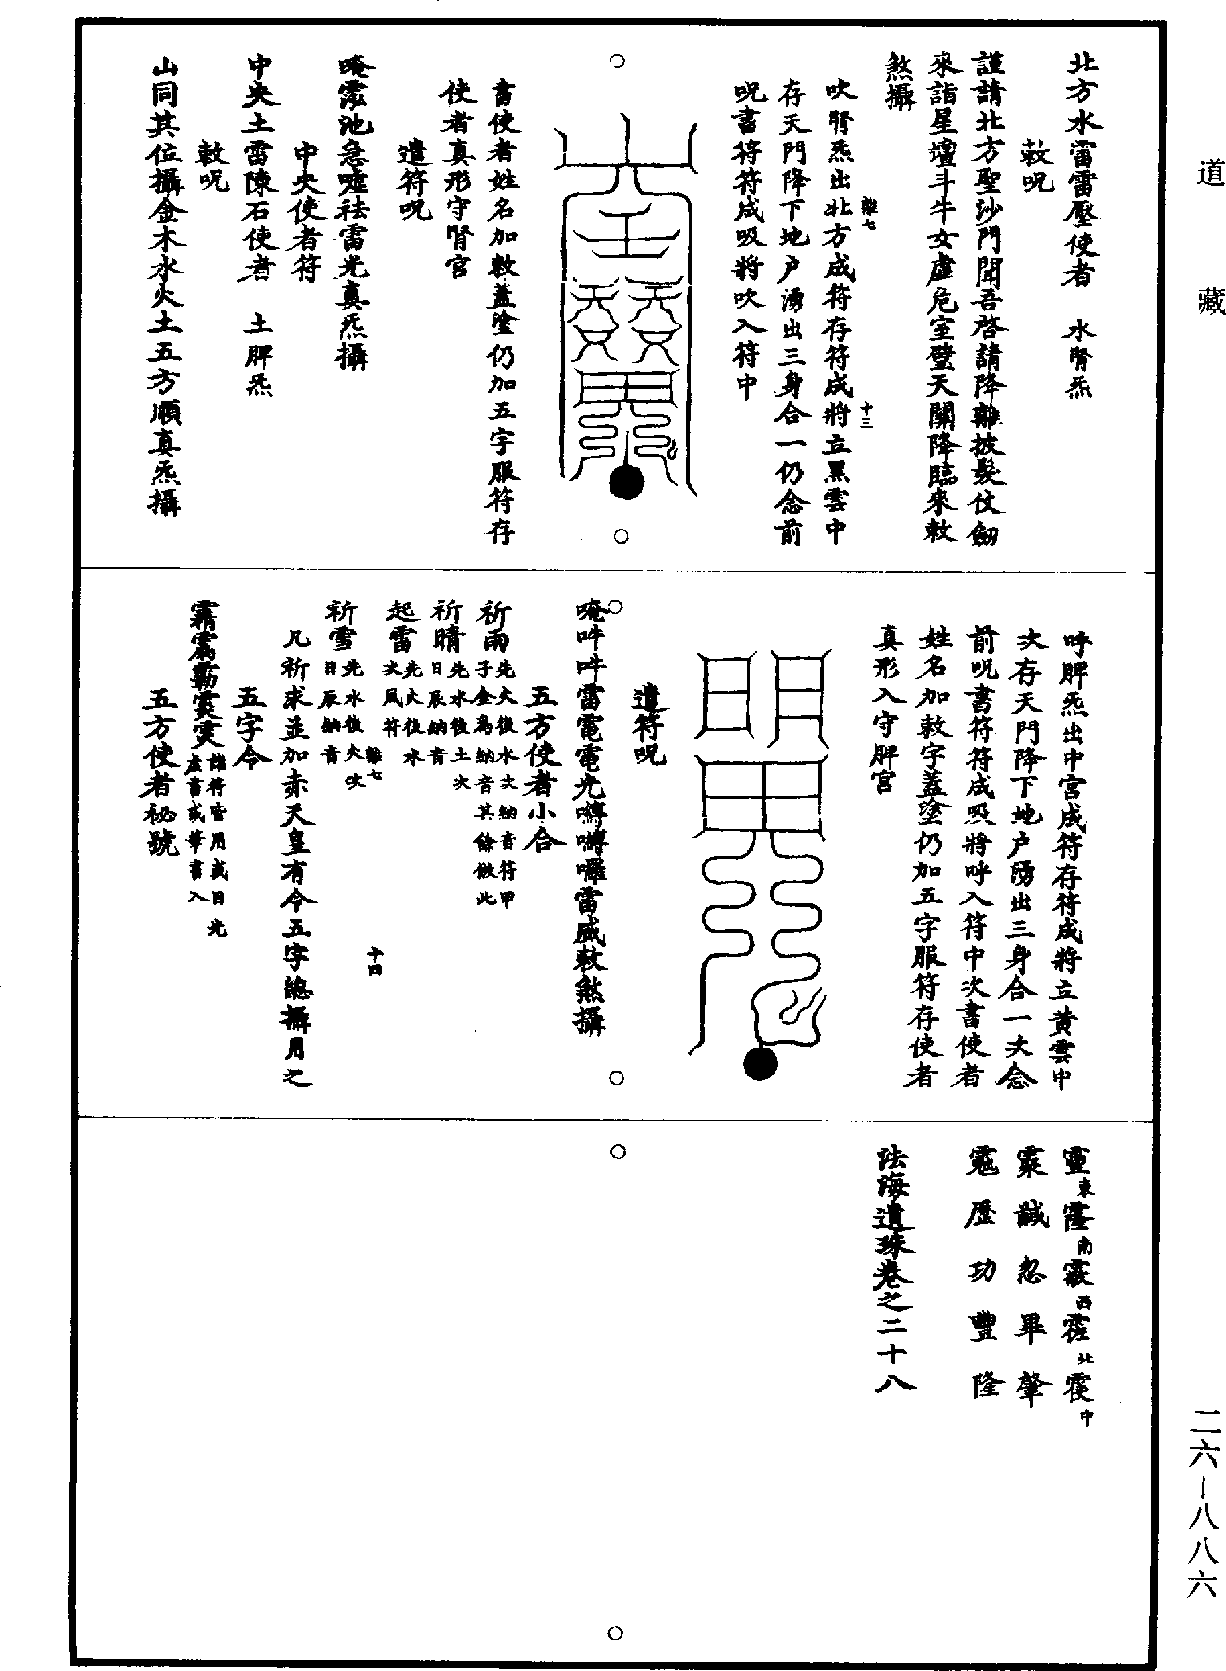 道藏
北方水雷雷壓使者　水腎炁
敕呪
謹請北方聖沙門聞吾啓請降離披髮仗劒
來詣星壇斗牛女虛危室壁天關降臨來敕
煞攝
吹腎炁出北方成符存符成將立黑雲中
存天門降下地户湧出三身合一仍念前
呪書符符成吸將吹入符中
書使者姓名加敕蓋塗仍加五字服符存
使者真形守腎宮
遣符呪
唵 池急嘘祛雷光真炁攝
中央使者符
中央土雷陳石使者　土脾炁
敕呪
山同其位攝金木水火土五方順真炁攝
呼脾炁出中宮成符存符成將立黃雲中
次存天門降下地户湧出三身合一次念
前呪書符符成吸將呼入符中次書使者
姓名加敕字蓋塗仍加五字服符存使者
真形入守脾宮
遣符呪
唵吽吽雷電電光 雷威敕煞攝
五方使者小合
祈雨先火後水次納音符甲
子金爲納音其餘倣此
祈晴先水後土次
日辰納音
起雷先火後水
次風符
祈雪先水後火次
日辰納音
凡祈求並加赤天皇有令五字總攝用之
五字令
諸符皆用或目光
左書或筆書入
五方使者秘號
東 南 西 北 中
誠忽畢肇
歷功豐隆
法海遺珠卷之二十八
離七
十三
離七
十四
二六—八八六